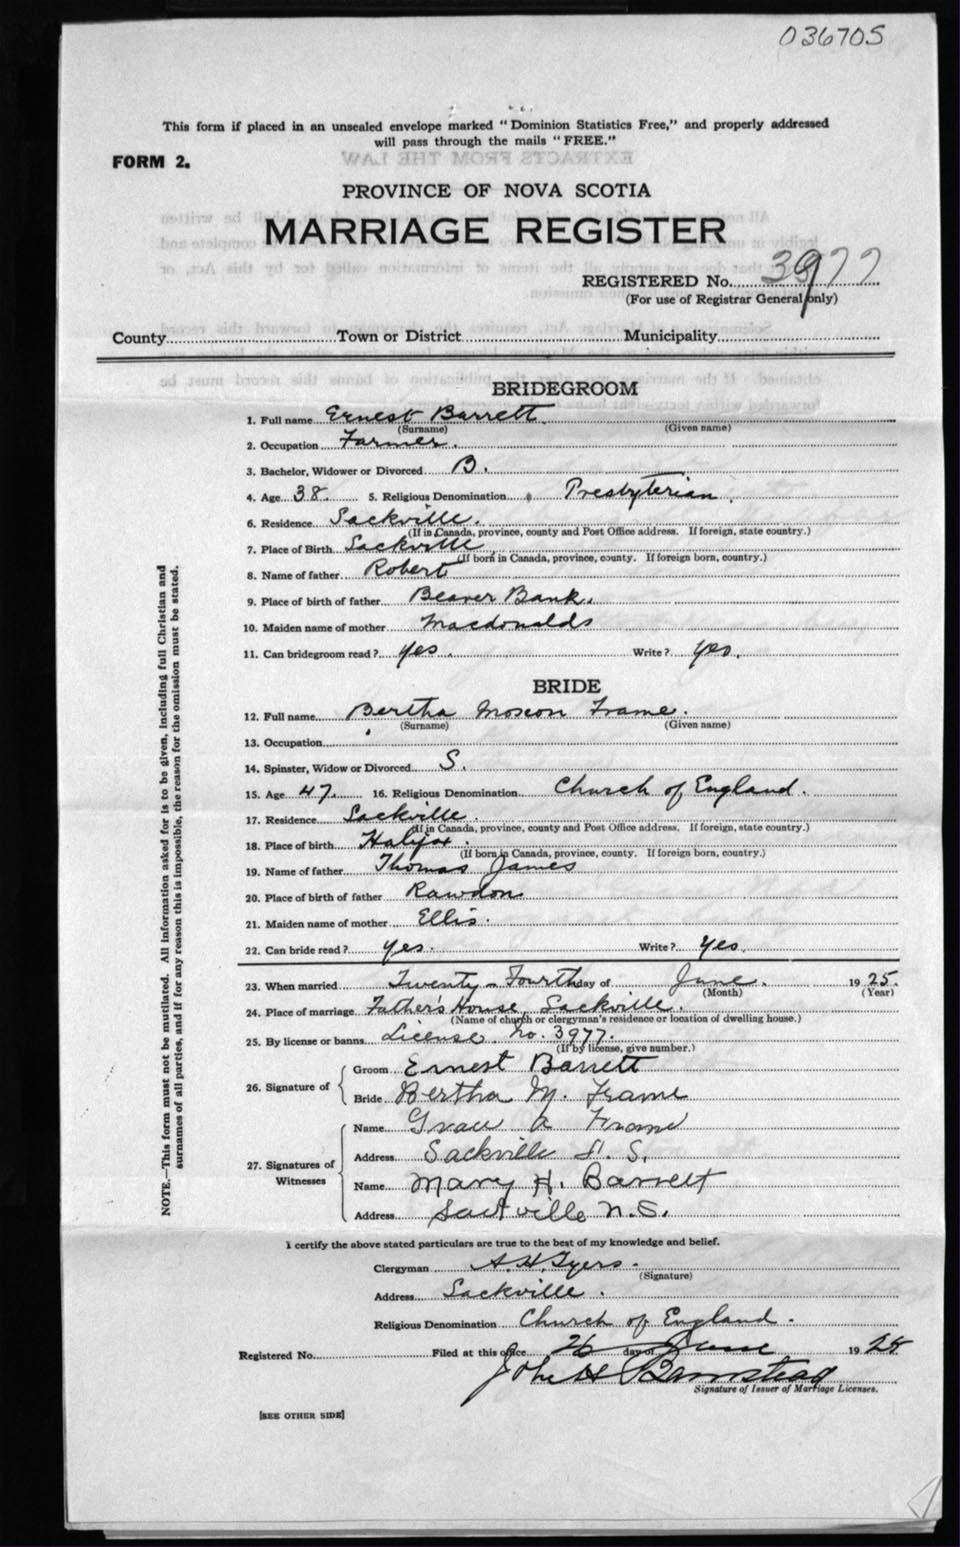 036705
This form if placed in an unsealed envelope marked "Dominion Statistics Free," and properly addressed
will pass through the mails "FREE."
FORM 2.
PROVINCE OF NOVA SCOTIA
MARRIAGE REGISTER
REGISTERED No. 3977
(For use of Registrar General only)
County Town or District Municipality
BRIDEGROOM
1. Full name Ernest Barrett
(Surname) (Given name)
2. Occupation Farmer.
3. Bachelor, Widower or Divorced B.
4. Age 38. 5. Religious Denomination Presbyterian.
6. Residence Sackville.
(If in Canada, province, county and Post Office address. If foreign, state country.)
7. Place of Birth Sackville
(If born in Canada, province, county. If foreign born, country.)
8. Name of father Robert
9. Place of birth of father Beaver Bank.
10. Maiden name of mother Macdonalds
11. Can bridegroom read? yes. Write? yes.
BRIDE
12. Full name Bertha Frame.
(Surname) (Given name)
13. Occupation
14. Spinster, Widow or Divorced S.
15. Age 47. 16. Religious Denomination Church of England.
17. Residence Sackville.
(If in Canada, province, county and Post Office address. If foreign, state country.)
18. Place of birth Halifax.
(If born in Canada, province, county. If foreign born, country.)
19. Name of father Thomas James
20. Place of birth of father Rawdon
21. Maiden name of mother Ellis.
22. Can bride read? yes. Write? yes.
23. When married Twenty-Fourth day of June. 1925.
(Month) (Year)
24. Place of marriage Father's House, Sackville.
(Name of church or clergyman's residence or location of dwelling house.)
25. By license or banns License. No. 3977.
(If by license, give number.)
26. Signature of
Groom Ernest Barrett
Bride Bertha M. Frame
27. Signatures of Witnesses
Name Grace A Frame
Address Sackville N. S.
Name Mary H. Barrett
Address Sackville N.S.
I certify the above stated particulars are true to the best of my knowledge and belief.
Clergyman A. H. Tyers.
(Signature)
Address Sackville.
Religious Denomination Church of England.
Registered No. Filed at this office 26 day of June 1925
John H Barnstead
Signature of Issuer of Marriage Licenses.
[SEE OTHER SIDE]
NOTE.—This form must not be mutilated. All information asked for is to be given, including full Christian and
surnames of all parties, and if for any reason this is impossible, the reason for the omission must be stated.